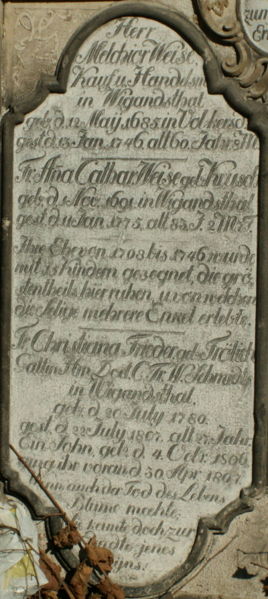 Herr
Melchior Weise,
Kauf u. Handelsm.
in Wigandsthal,
geb. d. 12 May 1685 in Volkersd.
gest. d. 13 Jan. 1746, alt 60 Jahr 8 M
Fr. Ana Cathar. Weise geb. Krusch
geb. d. 1 Nov. 1691 in Wigandsthal
gest. d. 11 Jan. 1775, alt 83 J. 2 M.
Ihre Ehe von 1708 bis 1746 wurde
mit 13 Kindern gesegnet, die grös-
stentheils hier ruhen, u. von welchen
die Selige mehrere Enkel erlebte.
Fr. Christiana Frieder. geb. Frölich
Gattin Hrn. Doct. C. Fr. W. Schmidts
in Wigandsthal.
geb. d. 20 July 1780.
gest. d. 22 July 1807. alt 27 Jahr
Ein Sohn, geb. d. 4. Octr. 1806
ging ihr voran d. 30 Apr. 1807.
auch der Tod des Lebens
Blume maehte,
konnte doch zur
jenes